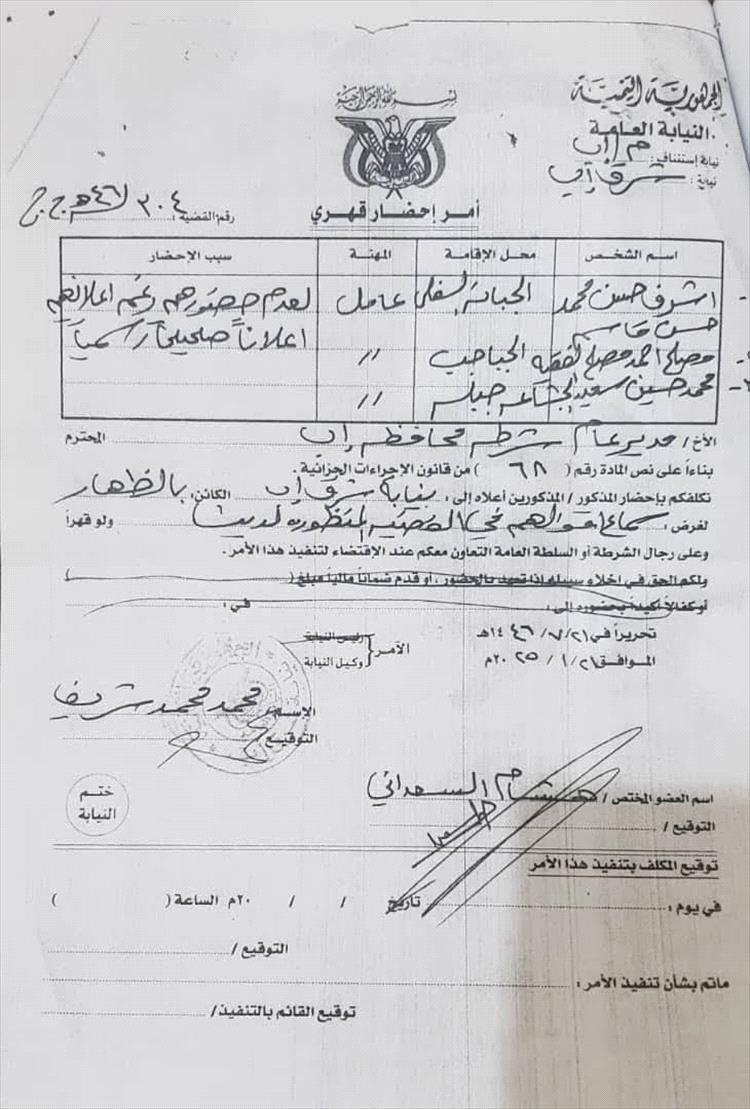 بسم الله الرحمن الرحيم
الجمهورية اليمنية
النيابة العامة
نيابة إستئناف: م/إب
نيابة: شرق إب
أمر إحضار قهري
رقم القضية: ٣٠٤ / ٤٦هـ ج.ج
اسم الشخص محل الإقامة المهنة سبب الإحضار
اشرف حسن محمد الجبانة السفلى عامل لعدم حضورهم رغم اعلانهم
حسن قاسم اعلاناً صحيحاً رسمياً
مصلح احمد مصلح الفقيه الجباجب //
محمد حسين سعيد جبله //
الأخ / مدير عام شرطة محافظة إب المحترم
بناءاً على نص المادة رقم ( ٦٨ ) من قانون الإجراءات الجزائية .
نكلفكم بإحضار المذكور / المذكورين أعلاه إلى : نيابة شرق إب الكائن: بالظهار
لغرض: سماع اقوالهم في القضية المنظورة لدينا ولو قهراً
وعلى رجال الشرطة أو السلطة العامة التعاون معكم عند الإقتضاء لتنفيذ هذا الأمر.
ولكم الحق في اخلاء سبيله إذا تعهد بالحضور ، أو قدم ضماناً مالياً مبلغ (
أو كفالاً أكيداً بحضوره إلى : في :
تحريراً في ٢١/ ٧/ ١٤٤٦هـ
الموافق ٢١/ ١/ ٢٠٢٥م
الآمر
رئيس النيابة
وكيل النيابة
الإسم محمد محمد شريف
التوقيع /
اسم العضو المختص / هشام السعداني
التوقيع /
ختم
النيابة
توقيع المكلف بتنفيذ هذا الأمر
في يوم : تاريخ / / ٢٠م الساعة ( )
التوقيع /
ماتم بشأن تنفيذ الأمر:
توقيع القائم بالتنفيذ/